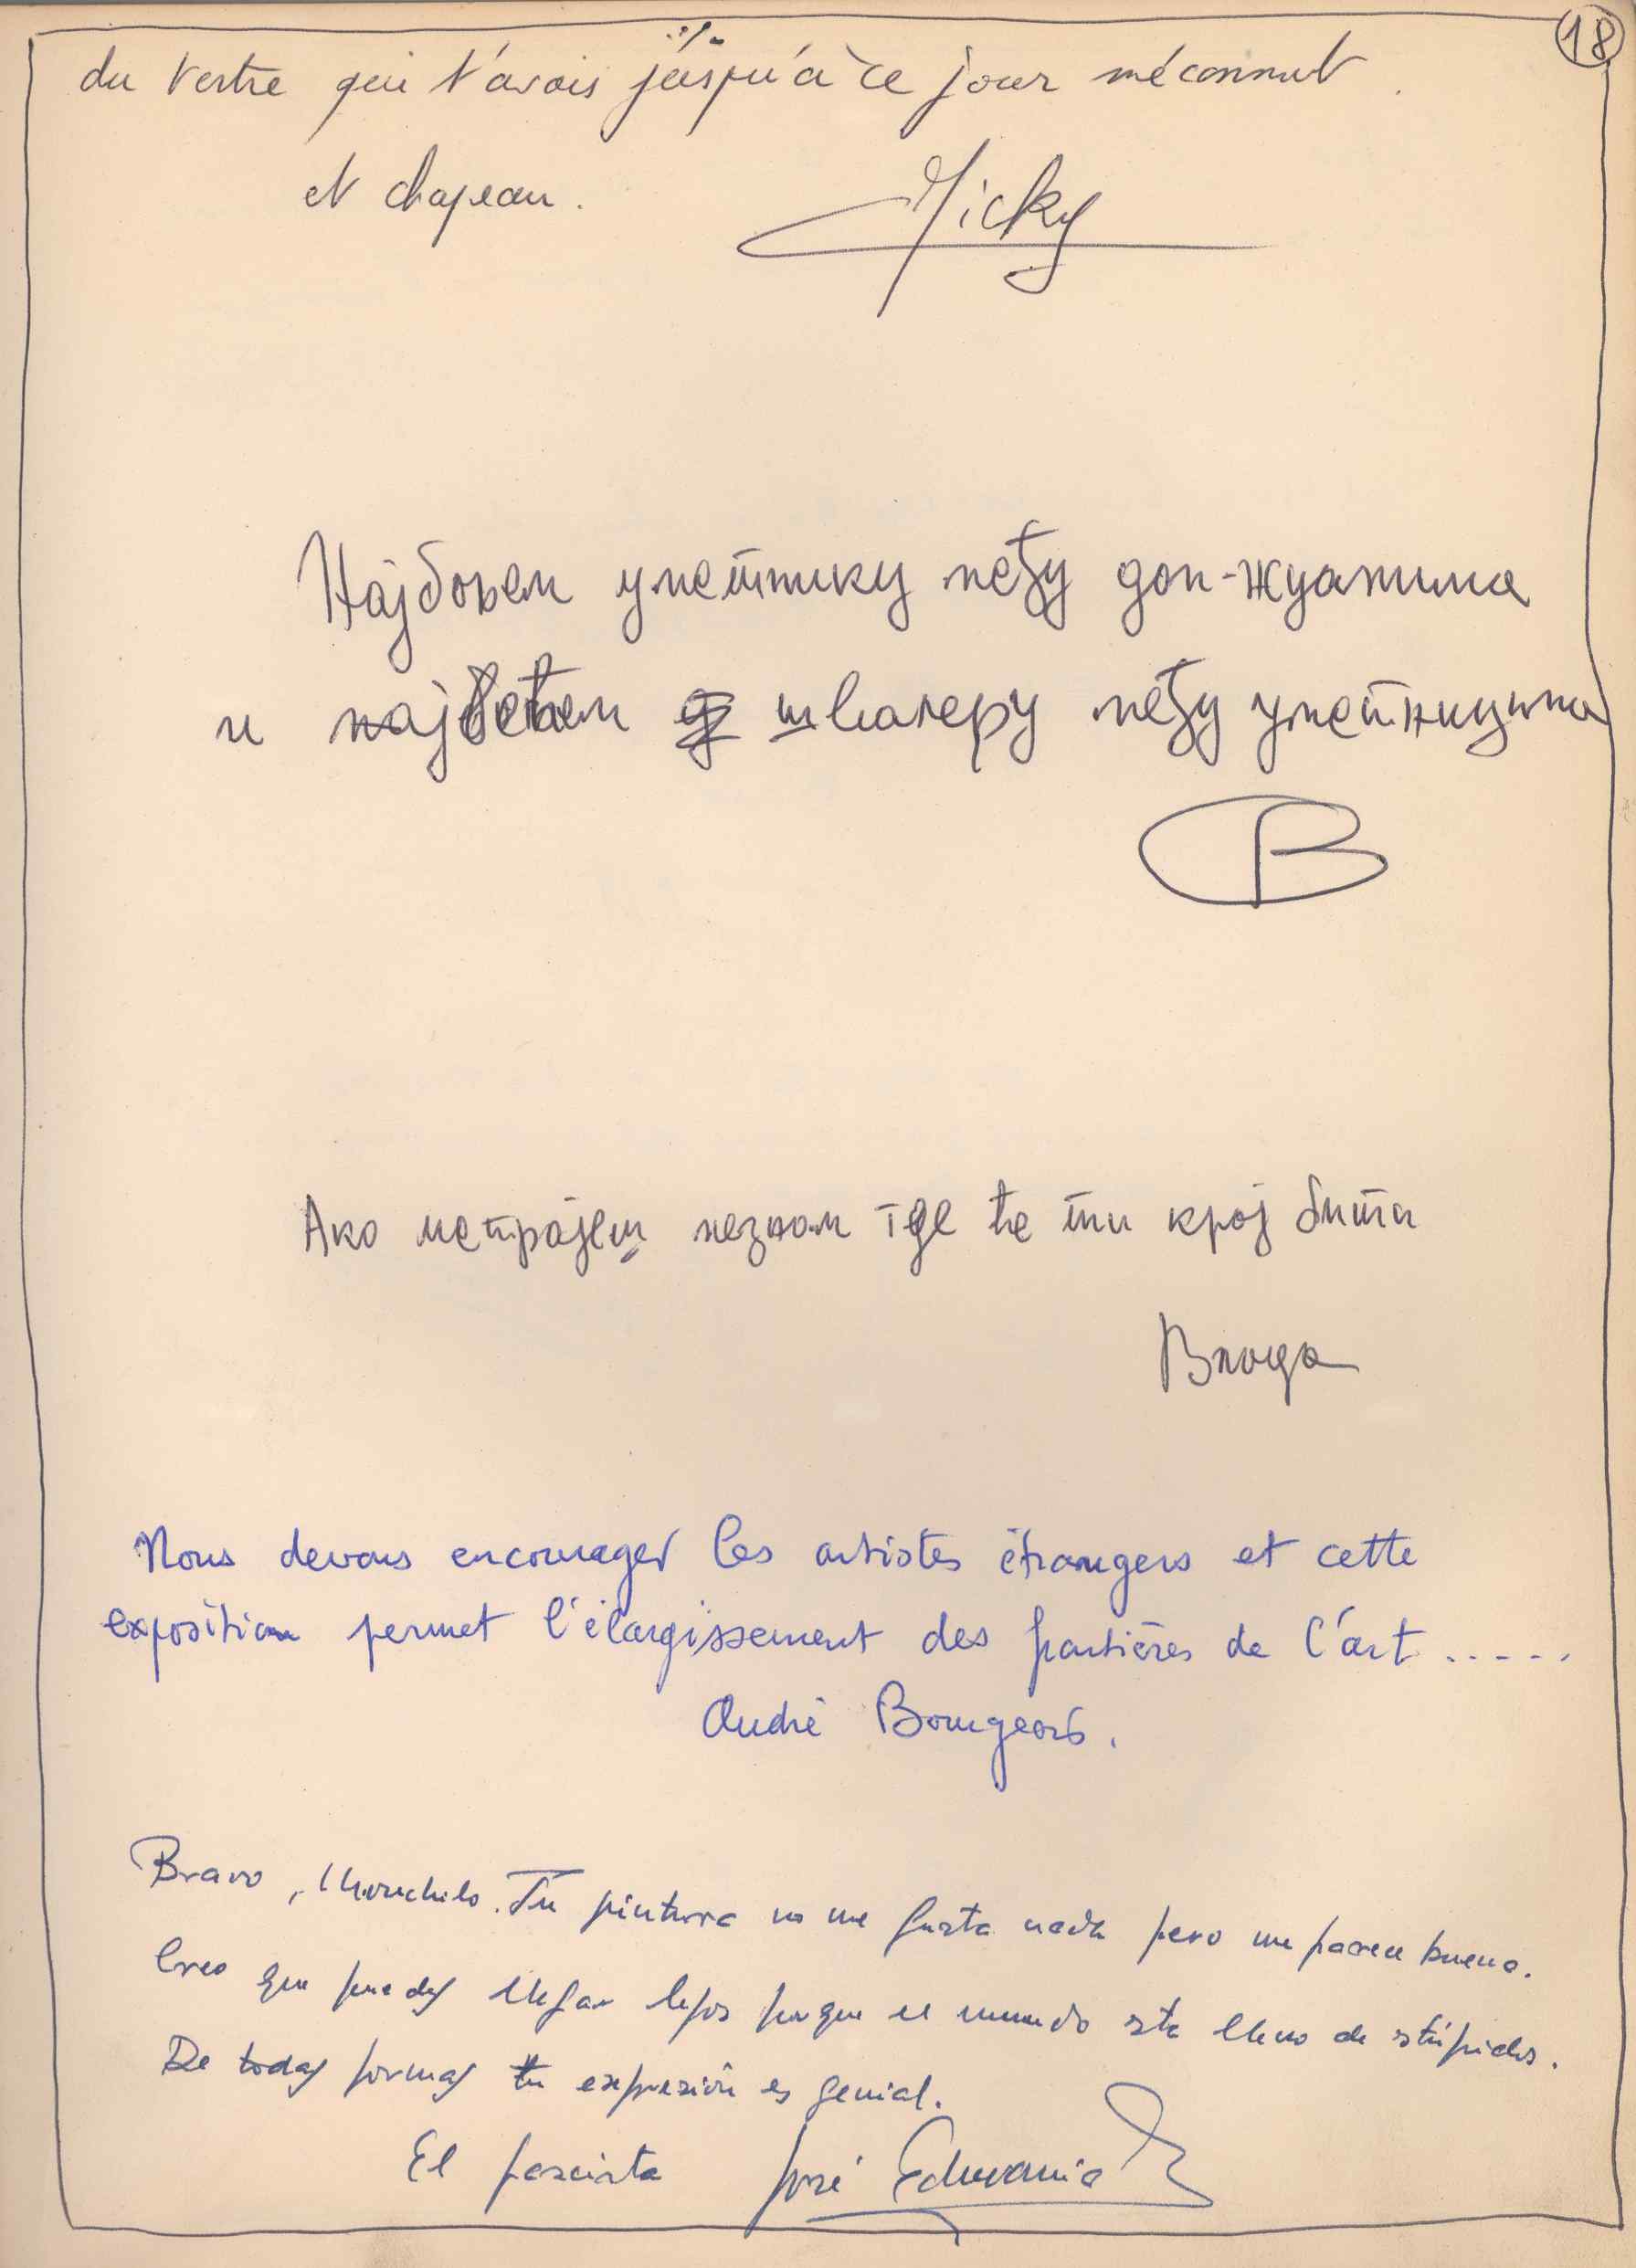 18
du tertre qui t'avais jusqu'à ce jour méconnut
et chapeau.
Micky
Најбољем уметнику међу дон-жуанима
и највећем швалеру међу уметницима
B
Ако непрајеш незнам где ће ти крај бити
Nous devons encourager les artistes étrangers et cette
exposition permet l'élargissement des frontières de l'art .....
André Bourgeois.
Bravo, Mouchilo. Tu pintura no me gusta nada pero me parece buena.
Creo que puedes llegar lejos porque el mundo esta lleno de stúpidos.
De todas formas tu expresión es genial.
El fascista José